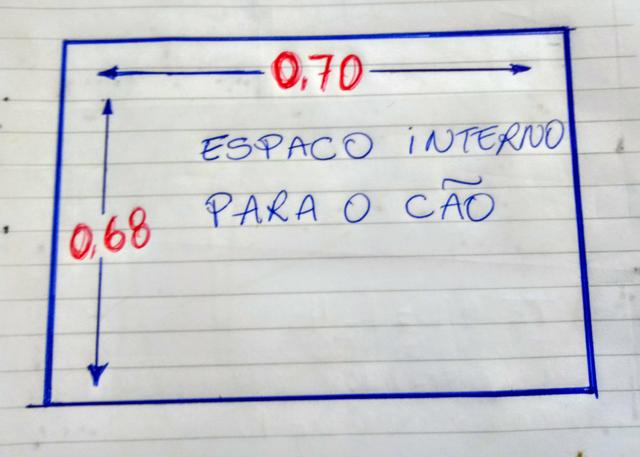 0,70
ESPACO INTERNO
PARA O CÃO
0,68